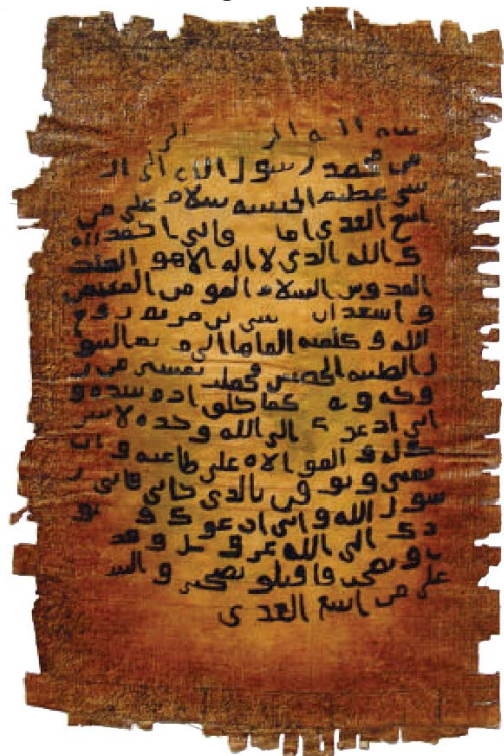 بسم الله الر الر
من محمد رسول الله الى ال
سى عظيم الحبشه سلام على من
اتبع الهدى اما وانى احمد
ك الله الذى لا اله الا هو الملك
القدوس السلام المومن المهيمن
و اشهد ان سى بن مريم روح
الله و كلمته القاها الى البتو
ل الطيبه الحصينه فحملت بعيسى من ر
وحه و ه كما خلق ادم بيده و
انى ادعوك الى الله وحده لا شر
يك له و الموالاه على طاعته و ان
تتبعنى و تو قن بالذى جانى فانى ر
سول الله و انى ادعوك و
دك الى الله عز و جل و قد
و نصحت فاقبلو نصحتى و الس
على من اتبع الهدى